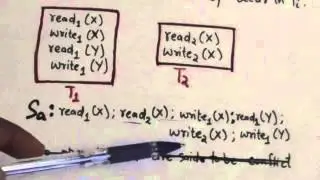 occur in Ti.
read1(X)
write1(X)
read1(Y)
write1(Y)
T1
read2(X)
write2(X)
T2
Sa: read1(X); read2(X); write1(X); read1(Y);
write2(X); write1(Y)
are said to be conflict